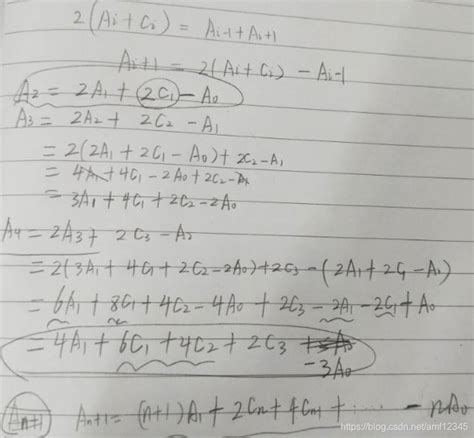 2(Ai + Ci) = Ai-1 + Ai+1
Ai+1 = 2(Ai + Ci) - Ai-1
A2 = 2A1 + 2C1 - A0
A3 = 2A2 + 2C2 - A1
= 2(2A1 + 2C1 - A0) + 2C2 - A1
= 4A1 + 4C1 - 2A0 + 2C2 - A1
= 3A1 + 4C1 + 2C2 - 2A0
A4 = 2A3 + 2C3 - A2
= 2(3A1 + 4C1 + 2C2 - 2A0) + 2C3 - (2A1 + 2C1 - A0)
= 6A1 + 8C1 + 4C2 - 4A0 + 2C3 - 2A1 - 2C1 + A0
= 4A1 + 6C1 + 4C2 + 2C3
- 3A0
An+1 An+1 = (n+1)A1 + 2Cn + 4Cn-1 + ... - nA0
https://blog.csdn.net/amf12345